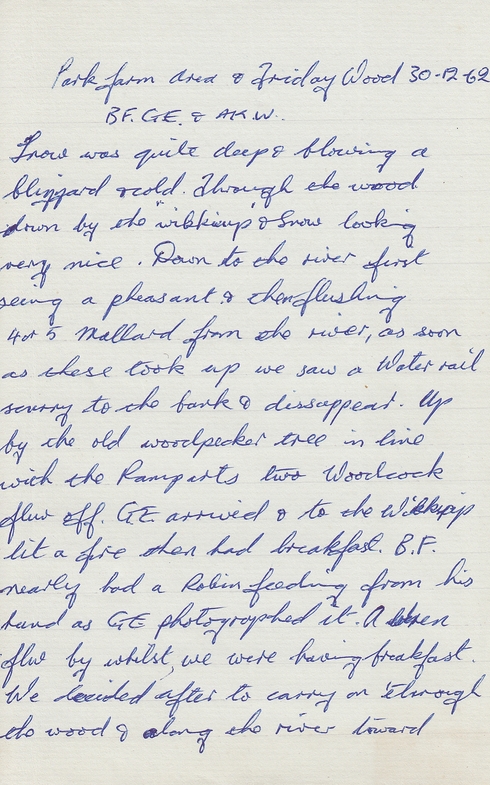 Park farm area & Friday Wood 30-12-62
B.F. G.E. & A.K.W..
Snow was quite deep & blowing a
blizzard & cold. Through the wood
down by the "wikkiup" & Snow looking
very nice. Down to the river first
seeing a pheasant & then flushing
4 or 5 Mallard from the river, as soon
as these took up we saw a Water rail
scurry to the bank & dissappear. Up
by the old woodpecker tree in line
with the Ramparts two Woodcock
flew off. GE arrived & to the Wikkiup
lit a fire then had breakfast. B.F.
nearly had a Robin feeding from his
hand as GE photographed it. A Wren
flew by whilst, we were having breakfast.
We decided after to carry on through
the wood & along the river toward